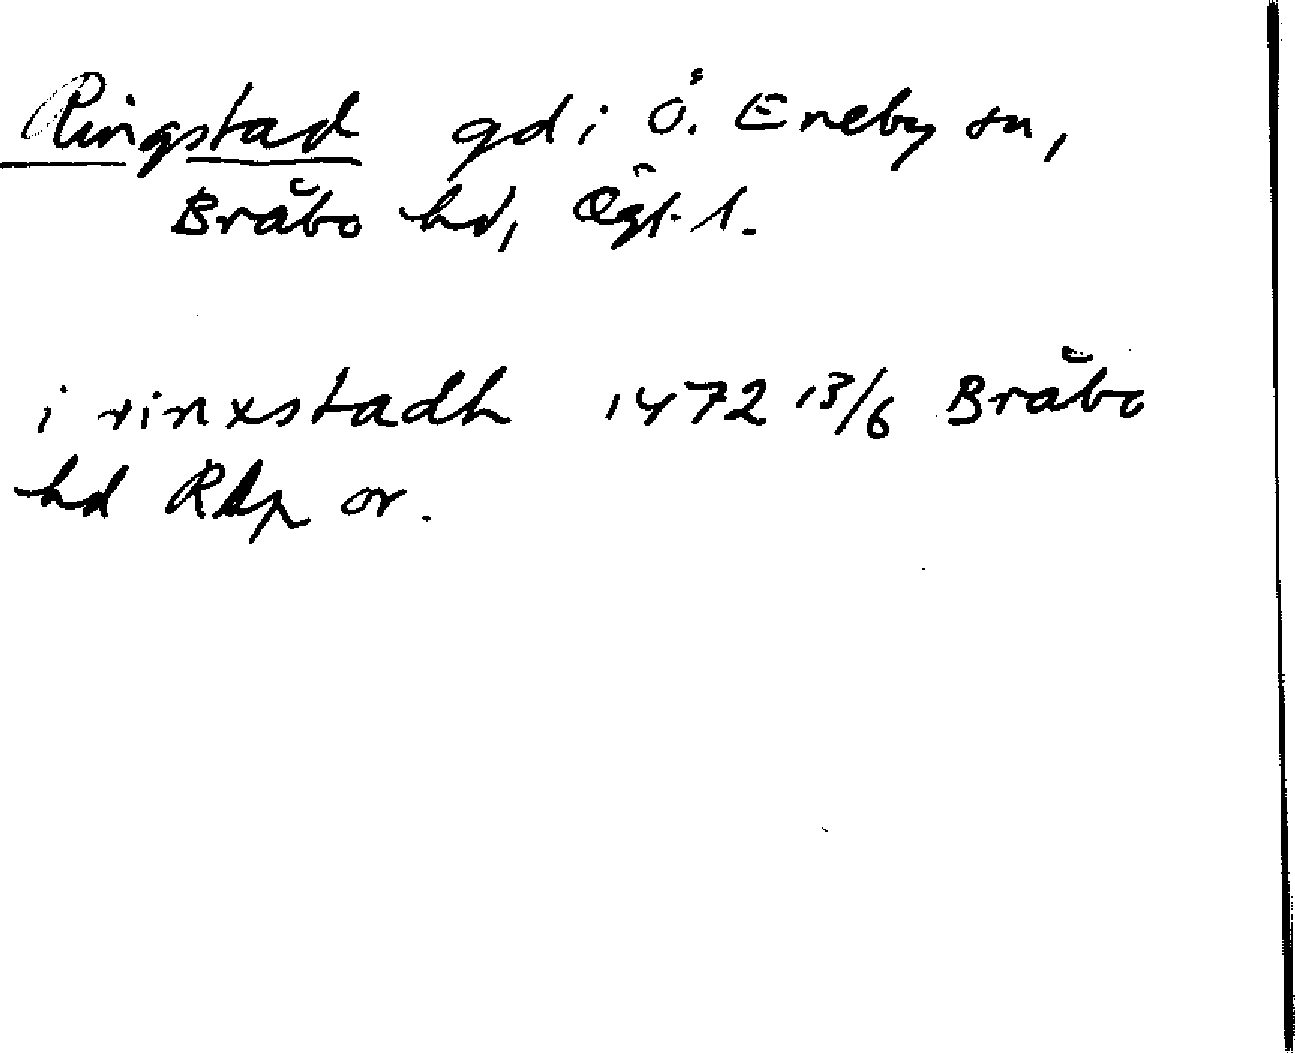 Ringstad gd i Ö. Eneby sn,
Bråbo hd, Ögl. l.
i rinxstadh 1472 13/6 Bråbo
hd RAp or.